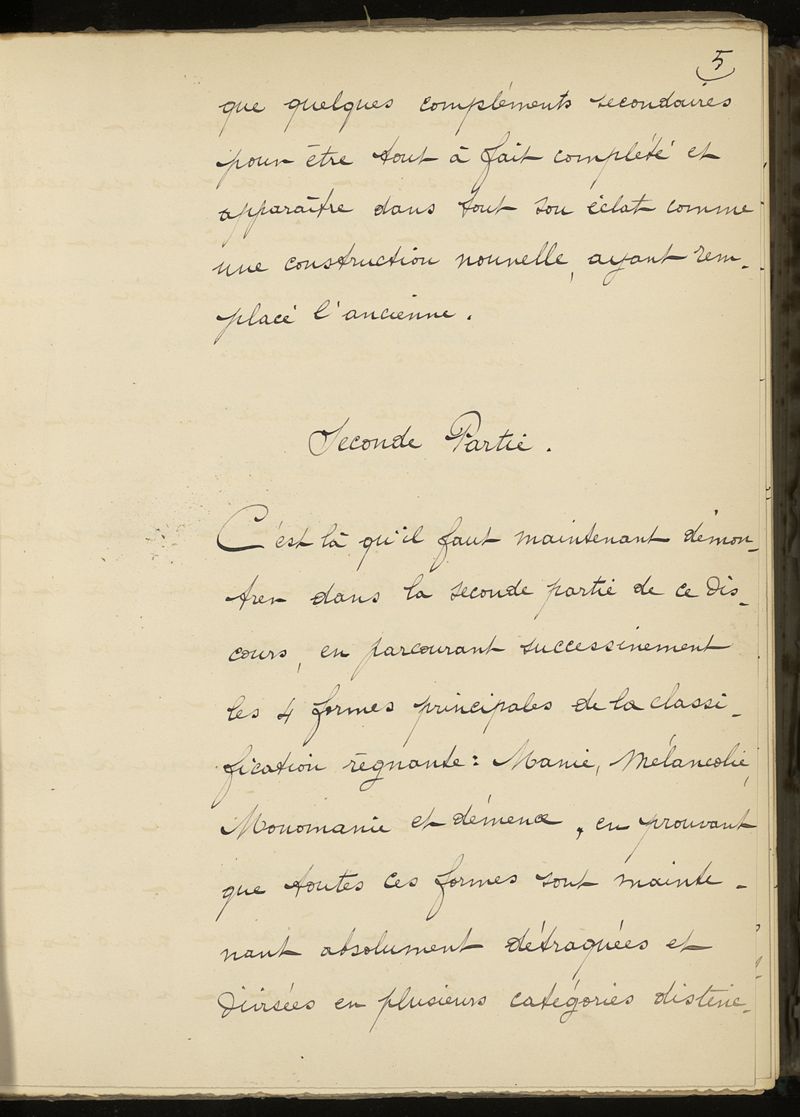 5
que quelques compléments secondaires
pour être tout à fait complété et
apparaître dans tout son éclat comme
une construction nouvelle, ayant rem-
placé l'ancienne.
Seconde Partie.
C'est là qu'il faut maintenant démon-
trer dans la seconde partie de ce dis-
cours, en parcourant successivement
les 4 formes principales de la classi-
fication régnante : Manie, Mélancolie,
Monomanie et démence, en prouvant
que toutes ces formes sont mainte-
nant absolument détraquées et
divisées en plusieurs catégories distinc-